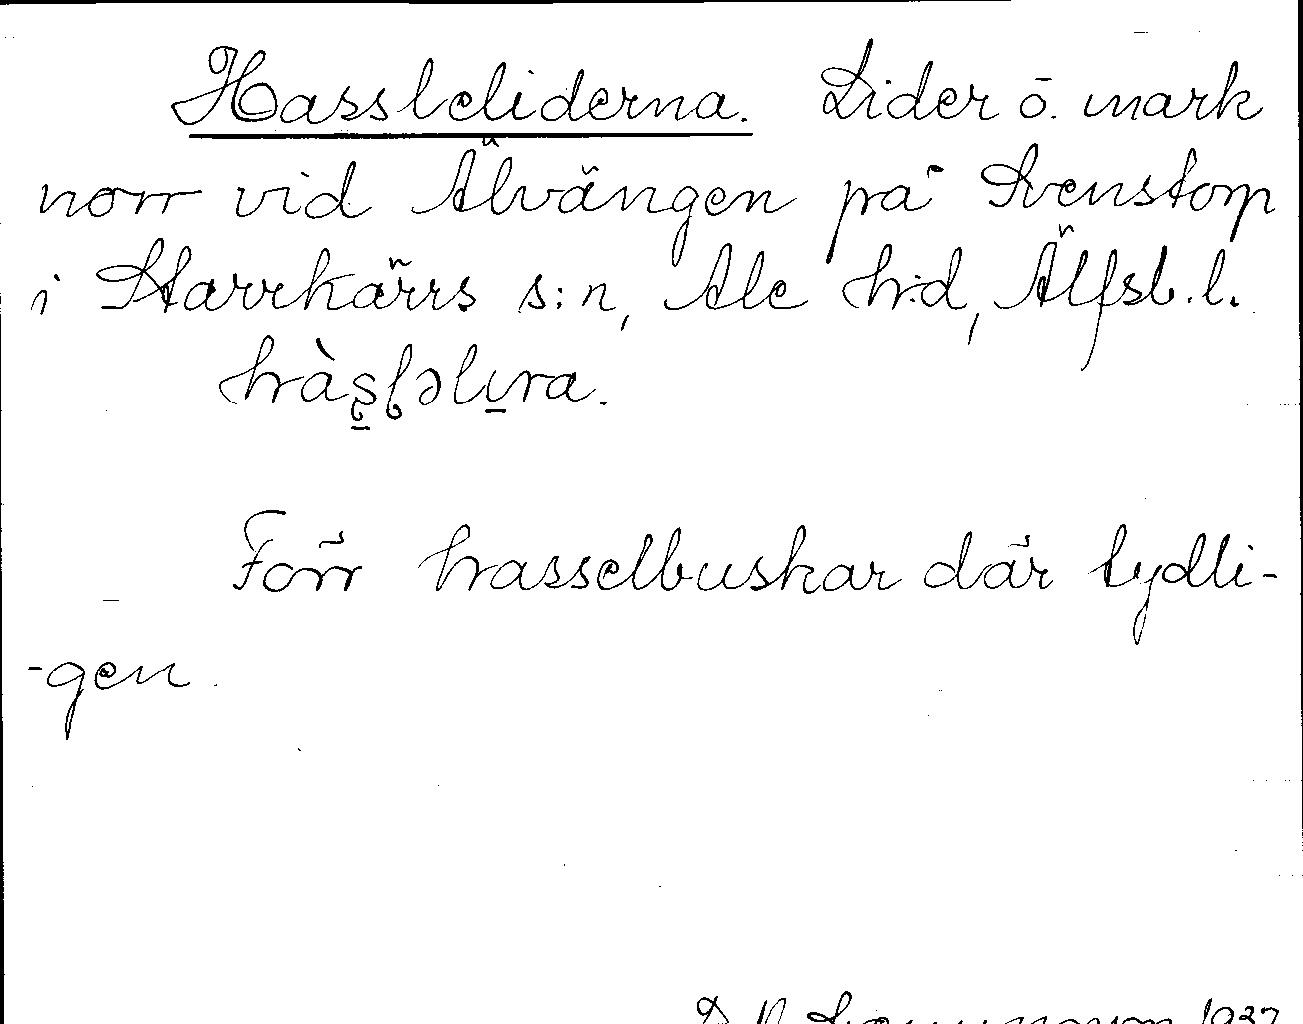 Hassleliderna. Lider o. mark
norr vid Älvängen på Svenstorp
i Starrkärrs s:n, Ale h:d, Älfsb. l.
Förr hasselbuskar där tydli-
-gen.
1937